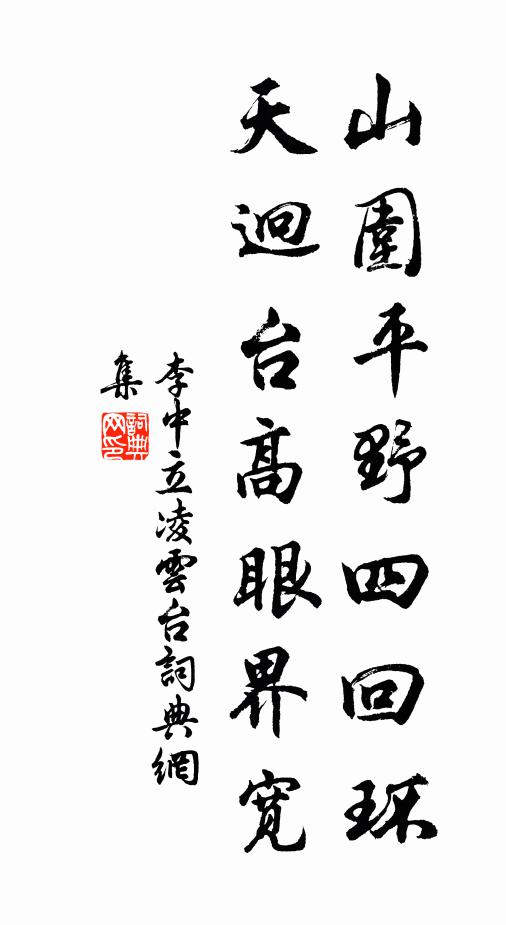 山圍平野四回环
天迥台高眼界寬
李中立凌雲台詞典網
集
詞典网印